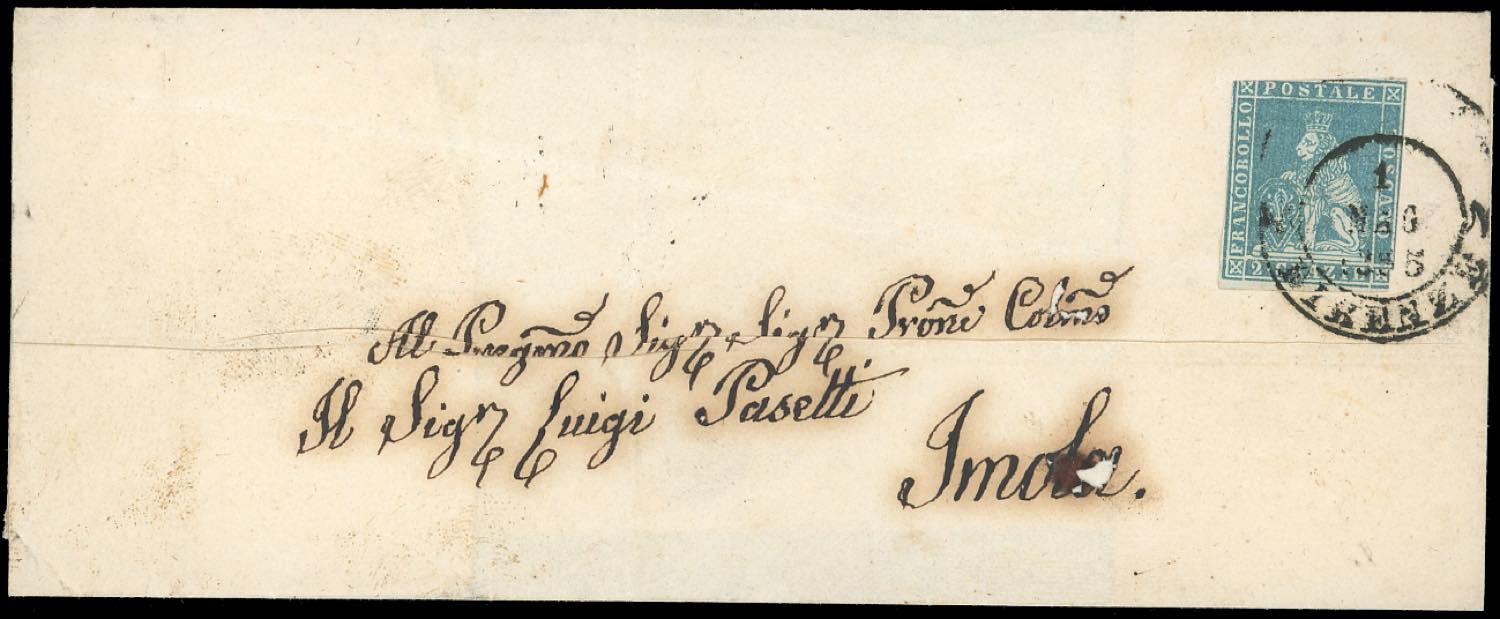 FRANCOBOLLO POSTALE TOSCANO
2 CRAZIE
1
MAG
FIRENZE
Al Pregmo Sigr Sigr Prone Colmo
Il Sigr Luigi Pasetti
Imola.